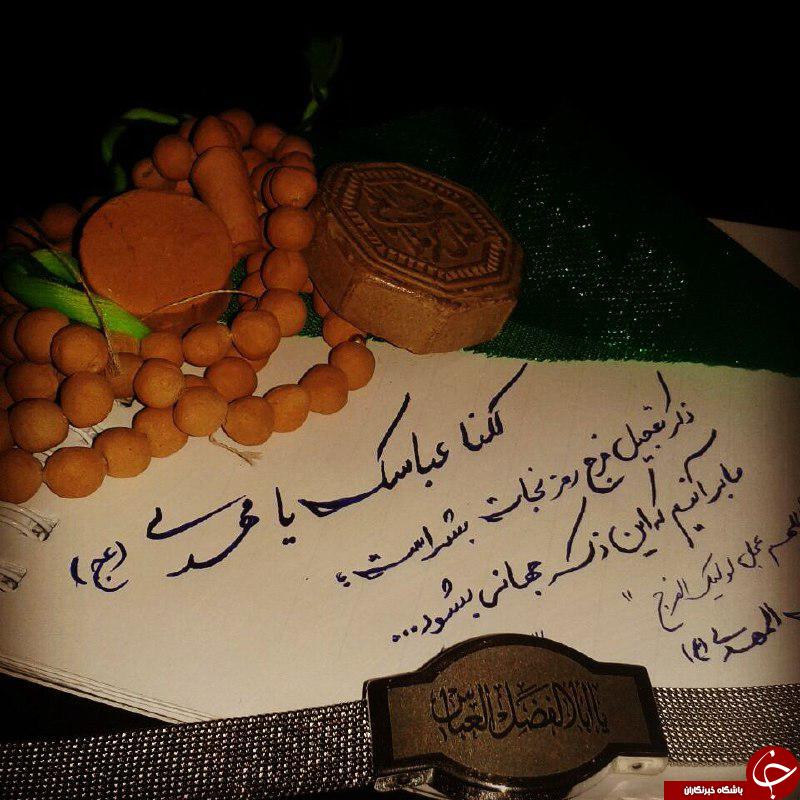 کلنا عباسک یا مهدی (عج)
ذکر تعجیل فرج رمز نجات بشر است ؛
ما برآنیم که این ذکر جهانی بشود...
اللهم عجل لولیک الفرج "
المهدی (عج)
یا اباالفضل العباس
باشگاه خبرنگاران